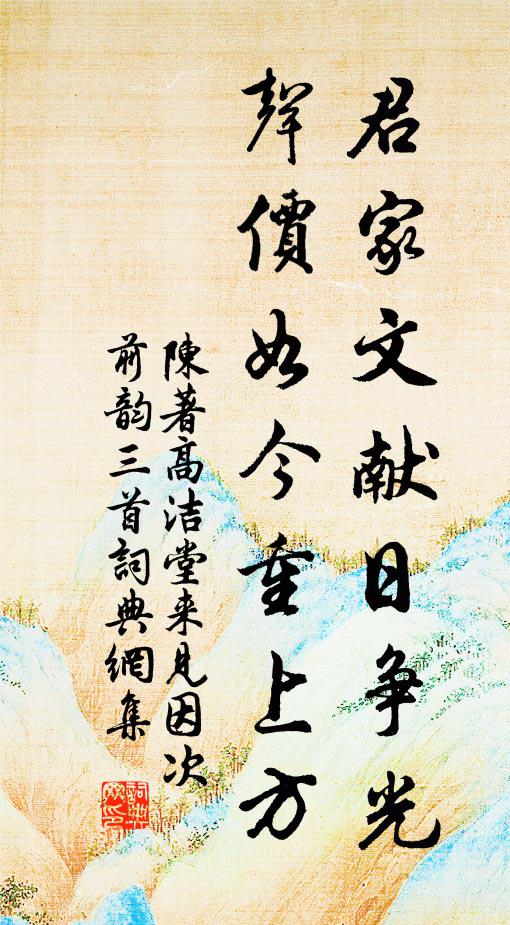 君家文献日争光
聲價如今重上方
陳著高洁堂来見因次
前韵三首詞典網集